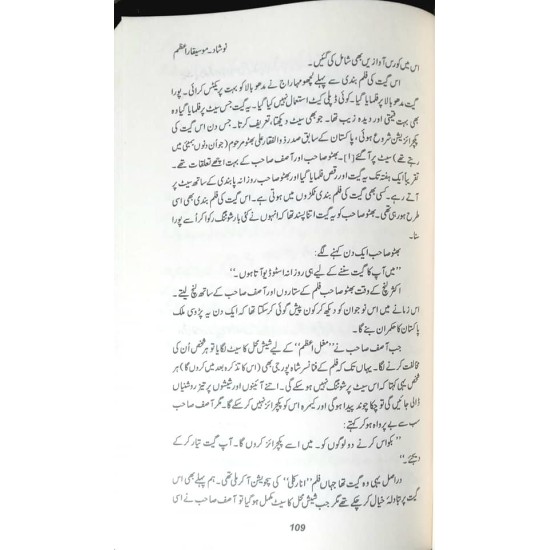 نوشاد۔موسیقار اعظم
اس میں کورس آوازیں بھی شامل کی گئیں۔
اس گیت کی فلم بندی سے پہلے لچھو مہاراج نے مدھوبالا کو بہت پریکٹس کرائی۔ پورا
گیت مدھوبالا پر فلمایا گیا۔ کوئی ڈپلی کیٹ استعمال نہیں کیا گیا۔ یہ گیت جس سیٹ پر فلمایا گیا وہ
بھی بہت قیمتی اور دیدہ زیب تھا۔ جو بھی سیٹ دیکھتا، تعریف کرتا۔ جس دن اس گیت کی
پکچرائزیشن شروع ہوئی، پاکستان کے سابق صدر ذوالفقار علی بھٹو مرحوم (جو ان دنوں بمبئی میں
رہتے تھے) سیٹ پر آ گئے [1]۔ بھٹو صاحب اور آصف صاحب کے بہت اچھے تعلقات تھے۔
تقریباً ایک ہفتہ تک یہ گیت اور رقص فلمایا گیا اور بھٹو صاحب روزانہ پابندی کے ساتھ سیٹ پر
آتے رہے۔ کسی بھی گیت کی فلم بندی ٹکڑوں میں ہوتی ہے۔ اس گیت کی فلم بندی بھی اسی
طرح ہو رہی تھی۔ بھٹو صاحب کو یہ گیت اتنا پسند تھا کہ انہوں نے کئی بار شوٹنگ رکوا کر اُسے پورا
سنا۔
بھٹو صاحب ایک دن کہنے لگے:
’’میں آپ کا گیت سننے کے لیے ہی روزانہ اسٹوڈیو آتا ہوں۔‘‘
اکثر لنچ کے وقت بھٹو صاحب فلم کے ستاروں اور آصف صاحب کے ساتھ لنچ لیتے۔
اس زمانے میں اس نوجوان کو دیکھ کر کون پیش گوئی کر سکتا تھا کہ ایک دن یہ پڑوسی ملک
پاکستان کا حکمران بنے گا۔
جب آصف صاحب نے ’’مغل اعظم‘‘ کے لیے شیش محل کا سیٹ لگایا تو ہر شخص اُن کی
مخالفت کرنے لگا۔ یہاں تک کہ فلم کے فنانسر شاہ پور جی بھی (اس کا تذکرہ بعد میں کروں گا) ہر
شخص یہی کہتا کہ اس سیٹ پر شوٹنگ نہیں ہو سکے گی۔ اتنے آئینوں اور شیشوں پر تیز روشنیاں
ڈالی جائیں گی تو چکا چوند پیدا ہو گی اور کیمرہ اس کو پکچرائز نہیں کر سکے گا۔ مگر آصف صاحب
سب سے بے پرواہ ہو کر کہتے:
’’بکواس کرنے دو لوگوں کو۔ میں اسے پکچرائز کروں گا۔ آپ گیت تیار کر کے
دیجئے۔‘‘
دراصل یہی وہ گیت تھا جہاں فلم ’’انار کلی‘‘ کی سچویشن آ کر ملی تھی۔ ہم پہلے بھی اس
گیت پر تبادلۂ خیال کر چکے تھے مگر جب شیش محل کا سیٹ مکمل ہو گیا تو آصف صاحب نے اسی
109